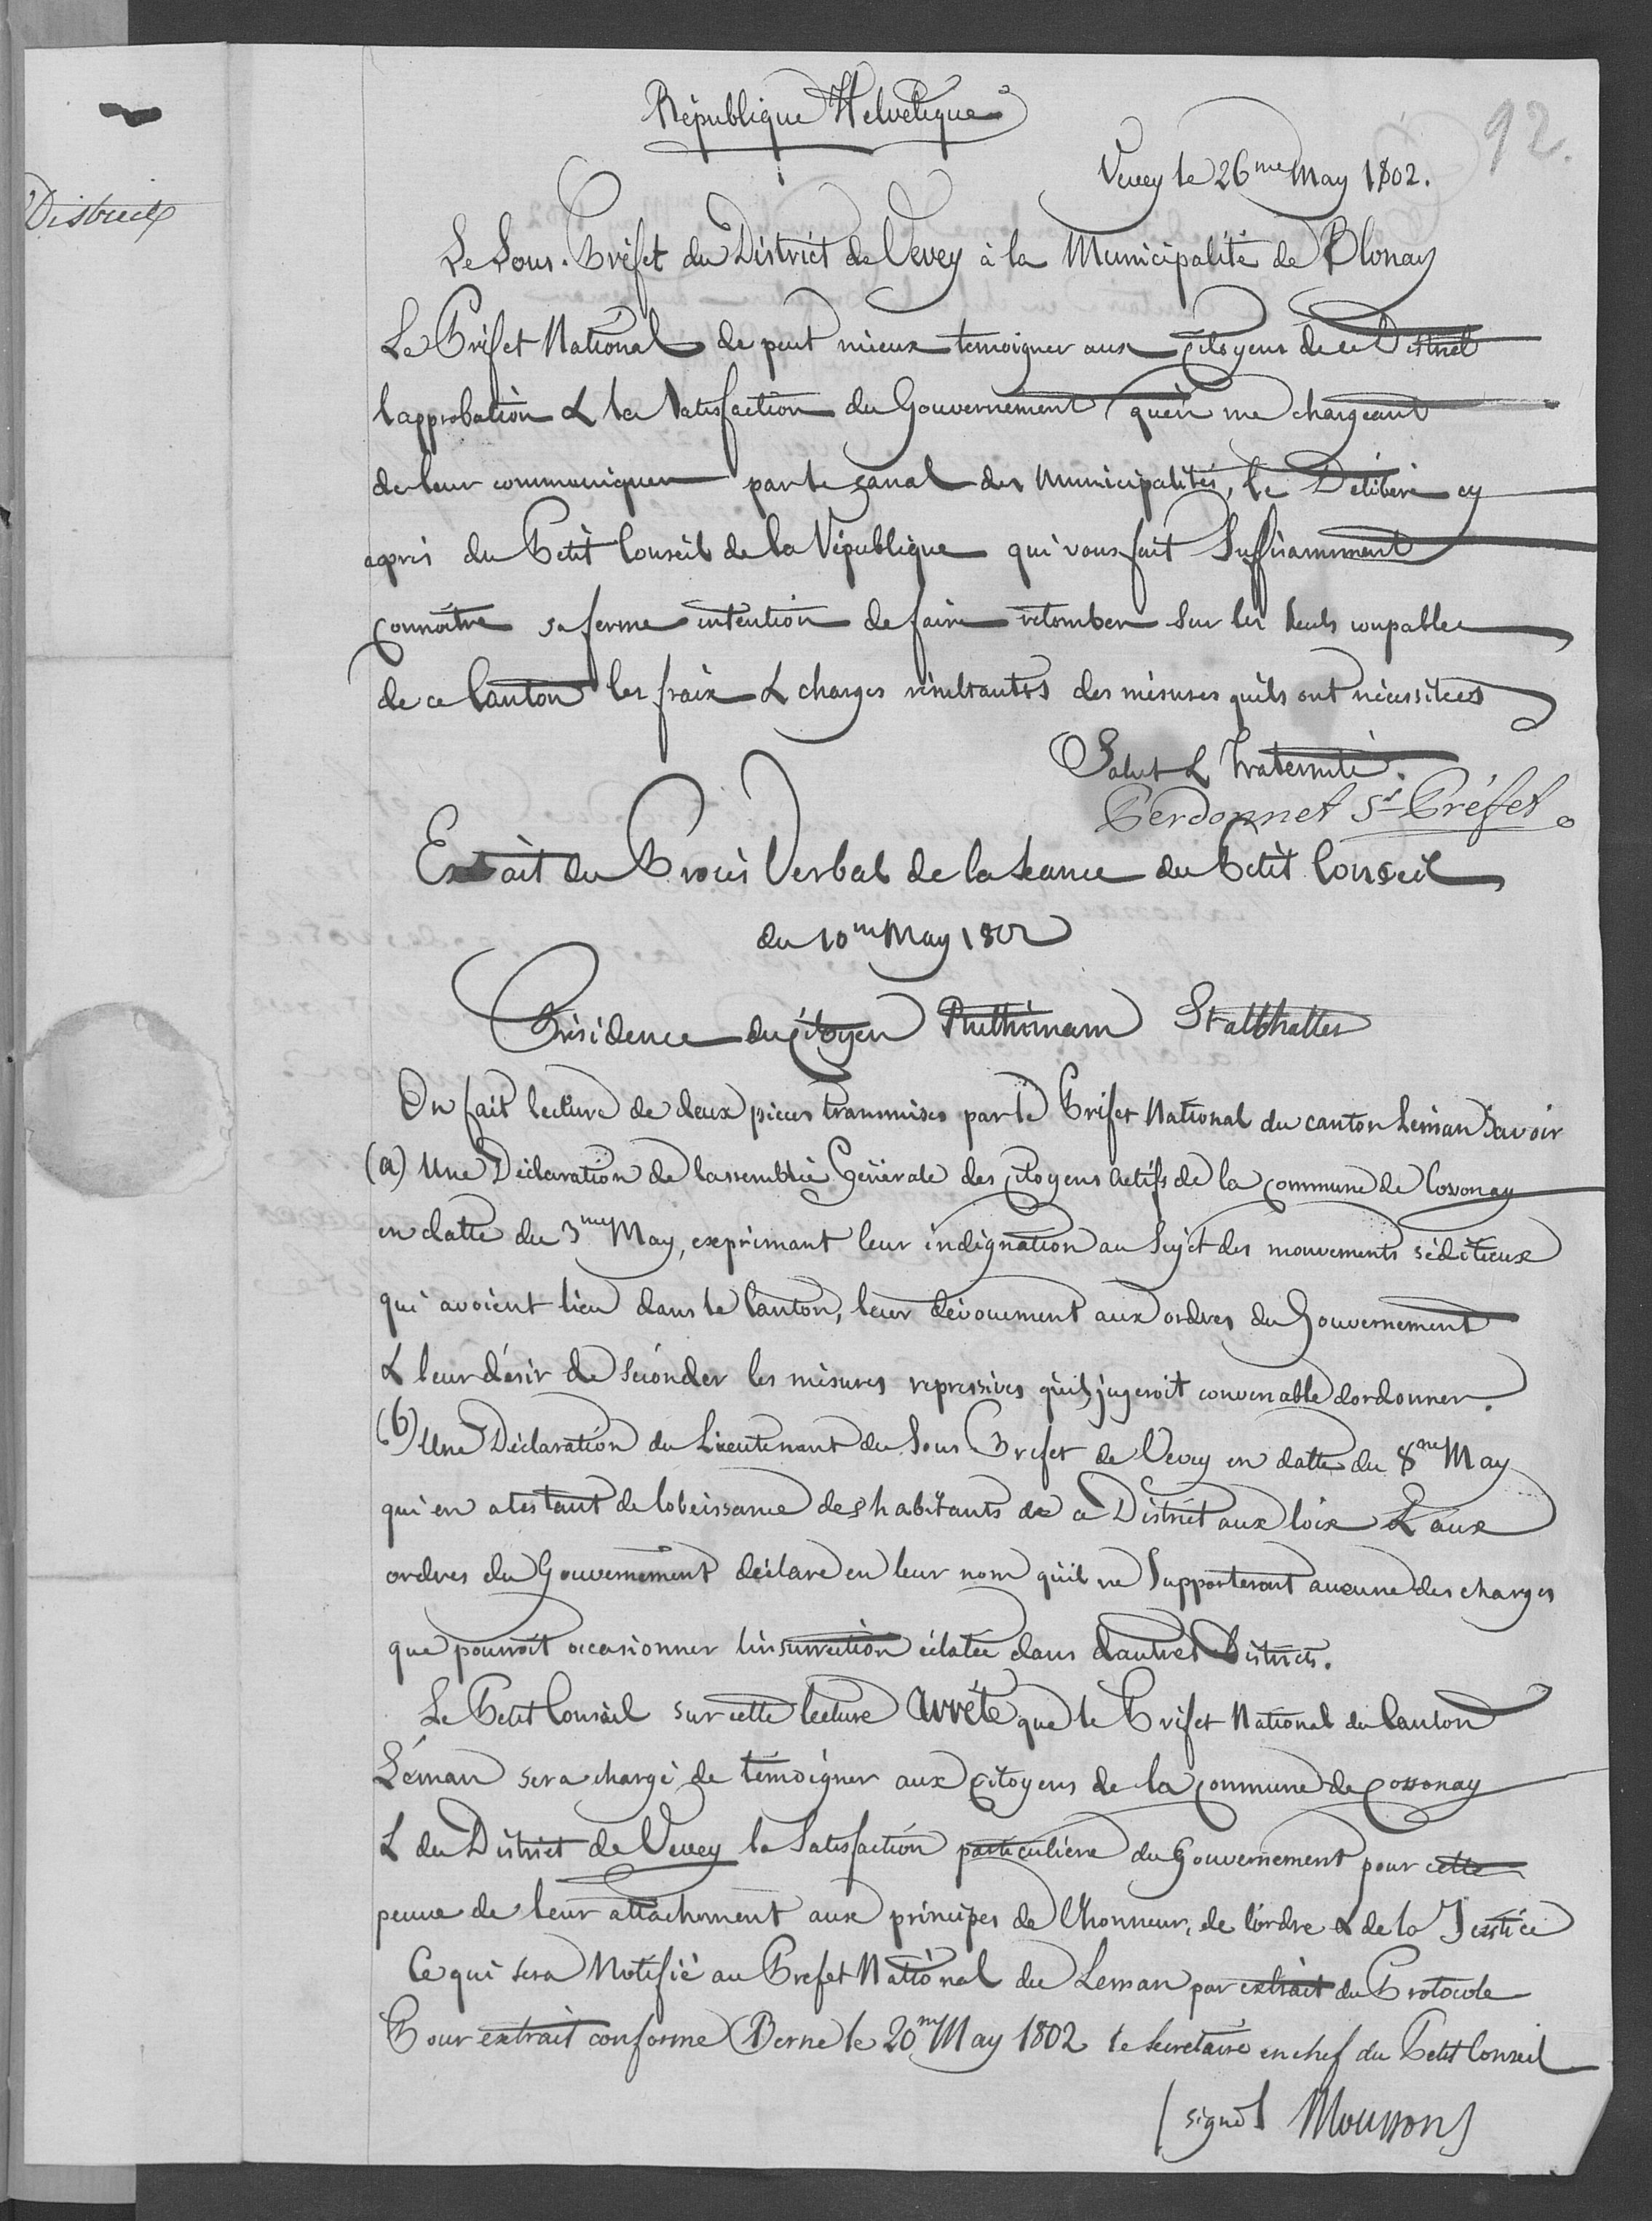 République Helvétique
92.
Vevey le 26me May 1802.
District
Le Sous-Préfet du District de Vevey à la Municipalité de Blonay
Le Préfet National ne peut mieux temoigner aux Citoyens de ce District
l'approbation & la Satisfaction du Gouvernement qu'en me chargeant
de leur communiquer par le canal des Municipalités, le Délibéré cy
après du Petit Conseil de la République qui vous fait Suffisamment
connoitre sa ferme intention de faire retomber Sur les seuls coupables
de ce Canton les fraix & charges résultantes des mésures quils ont nécessitées
Salut & Fraternité.
Perdonnet Ss-Préfet
Extrait du Procès Verbal de la Seance du Petit Conseil
du 10me May 1802
Présidence du Citoyen Ruttimann Statthalter
On fait lecture de deux pieces transmises par le Préfet National du canton Leman Savoir
(a) Une Déclaration de lassemblée Générale des Citoyens actifs de la Commune de Cossonay
en datte du 3me May, exprimant leur indignation au Sujet des mouvements séditieux
qui avoient lieu dans le Canton, leur dévouement aux ordres du Gouvernement
& leur désir de séconder les mésures repressives qu'il jugeroit convenable dordonner.
(b) Une Déclaration du Lieutenant du Sous Prefet de Vevey en datte du 8me May
qui en atestant de lobeissance des habitants de ce District aux loix & aux
ordres du Gouvernement déclare en leur nom qu'il ne Supporteront aucune des charges
que pourroit occasionner linsurrection éclatée dans dautres Districts.
Le Petit Conseil sur cette lecture Arrête que le Préfet National du Canton
Léman sera chargé de témoigner aux Citoyens de la Commune de Cossonay
& du District de Vevey la Satisfaction particulière du Gouvernement pour cette
peuve de leur attachement aux principes de l'honneur, de l'ordre & de la Justice
Ce qui sera Notifié au Prefet National du Leman par extrait du Protocole
Pour extrait conforme Berne le 20me May 1802 le Secretaire en chef du Petit Conseil
(signé) Mousson